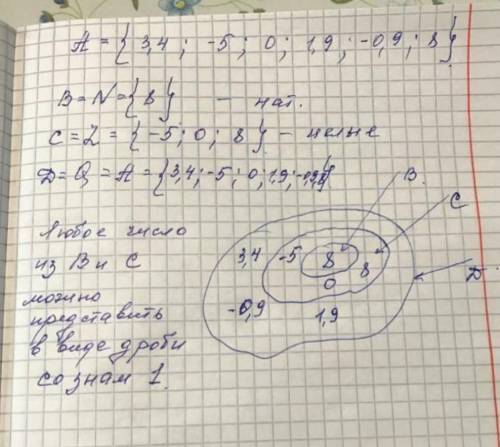 A = { 3,4 ; -5 ; 0 ; 1,9 ; -0,9 ; 8 }
B = N = { 8 } — нат.
C = Z = { -5 ; 0 ; 8 } — целые
D = Q = A = { 3,4 ; -5 ; 0 ; 1,9 ;
Любое число
из B и C
можно
представить
в виде дроби
со знам 1.
B.
C
3,4 -5 8 8
0
D
-0,9 1,9